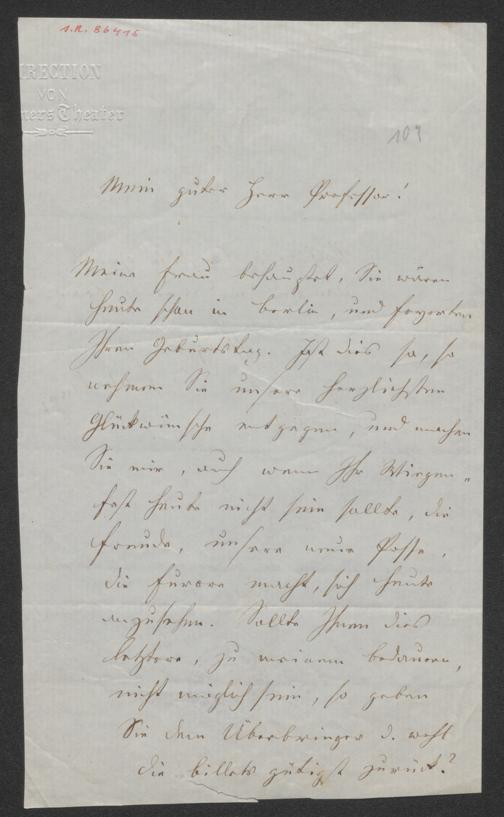 I.N. 86415
RECTION
VON
ners Theater
109
Mein guter Herr Professor!
Meine Frau behauptet, Sie wären
heute schon in Berlin, und feyerten
Ihren Geburtstag. Ist dies so, so
nehmen Sie unsere herzlichsten
Glückwünsche entgegen, und machen
Sie mir, auch wenn Ihr Wiegen-
fest heute nicht sein sollte, die
Freude, unsere neue Posse,
die Furore macht, sich heute
anzusehen. Sollte Ihnen dies
letztere, zu meinem Bedauern,
nicht möglich sein, so geben
Sie dem Überbringer d. wohl
die Billets gütigst zurück?